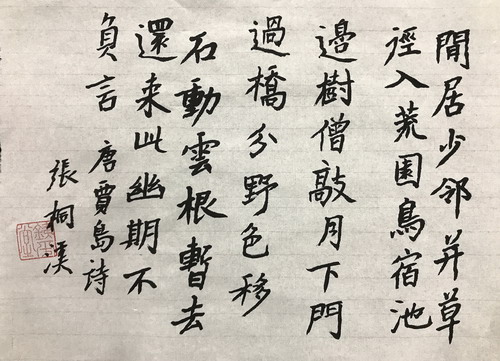 閒居少邻并草
徑入荒園鳥宿池
邊樹僧敲月下門
過橋分野色移
石動雲根暫去
還来此幽期不
負言 唐賈島詩
張桐溪